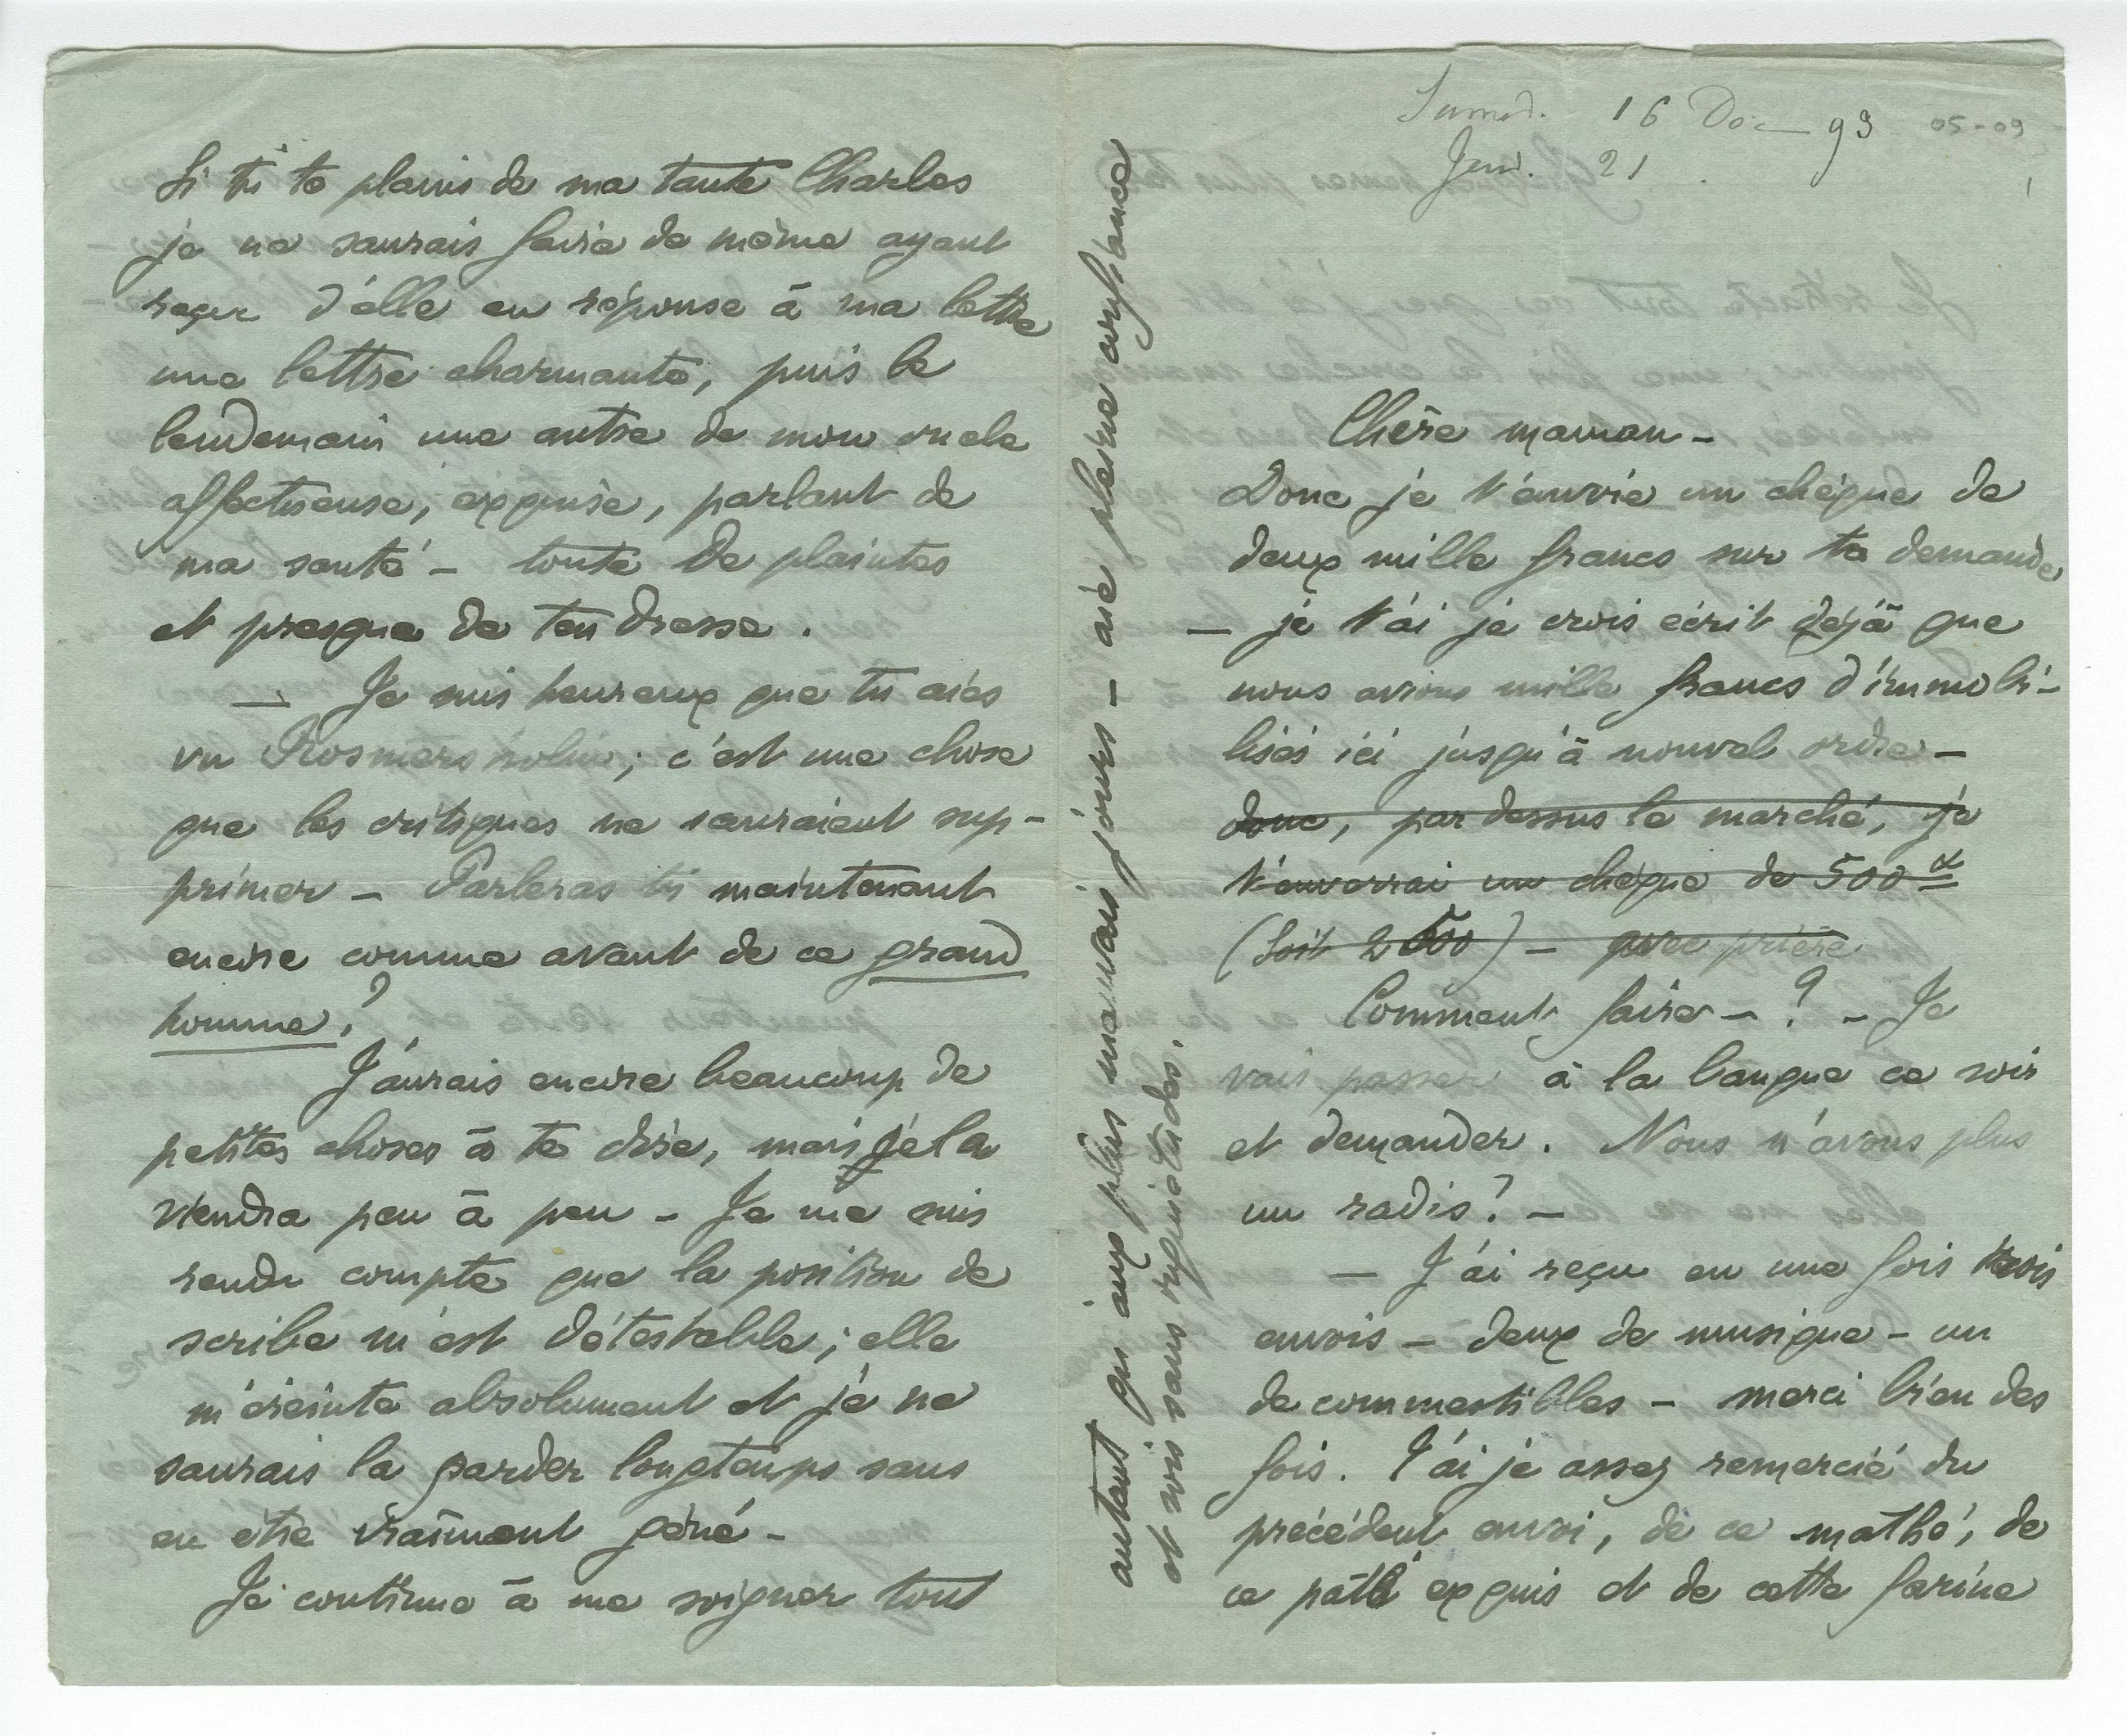 Samd. 16 Déc — 93 05-09
Jeud. 21
1
Chère maman –
Donc je t'envoie un chèque de
deux mille francs sur ta demande
— je t'ai je crois écrit déjà que
nous avions mille francs d'immobi-
lisés ici jusqu'à nouvel ordre –
donc, par dessus le marché, je
t'enverrai un chèque de 500
(soit 2500) – avec prière
Comment faire – ? – Je
vais passer à la banque ce soir
et demander. Nous n'avons plus
un radis? –
— J'ai reçu en une fois trois
envois – deux de musique – un
de commestibles – merci bien des
fois. T'ai je assez remercié du
précédent envoi, de ce mathé, de
ce pâté exquis et de cette farine
Si tu te plains de ma tante Charles
je ne saurais faire de même ayant
reçu d'elle en réponse à ma lettre
une lettre charmante, puis le
lendemain une autre de mon oncle
affectueuse, exquise, parlant de
ma santé – toute de plaintes
et presque de tendresse.
— Je suis heureux que tu aies
vu Rosmersholm; c'est une chose
que les critiques ne sauraient sup-
primer – Parleras tu maintenant
encore comme avant de ce grand
homme?
J'aurais encore beaucoup de
petites choses à te dire, mais cela
viendra peu à peu – Je me suis
rendu compte que la position de
scribe m'est détestable; elle
m'éreinte absolument et je ne
saurais la garder longtemps sans
en être vraiment gêné –
Je continue à me soigner tout
autant qu'aux plus mauvais jours – aie pleine confiance
et sois sans inquiétudes.